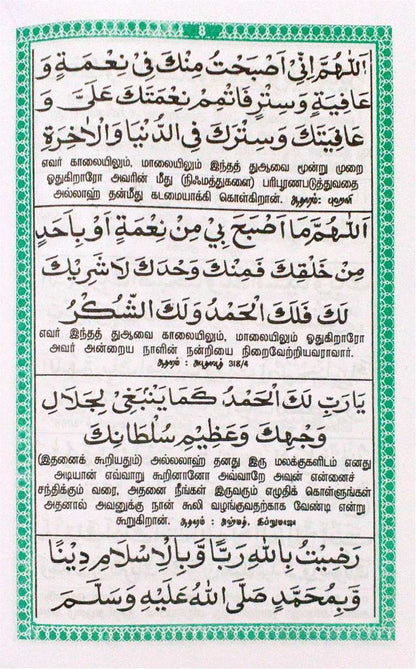 8
اَللّٰهُمَّ اِنِّيْ اَصْبَحْتُ مِنْكَ فِيْ نِعْمَةٍ وَ
عَافِيَةٍ وَسِتْرٍ فَاَتْمِمْ نِعْمَتَكَ عَلَيَّ وَ
عَافِيَتَكَ وَسِتْرَكَ فِي الدُّنْيَا وَالْاٰخِرَةِ
எவர் காலையிலும், மாலையிலும் இந்தத் துஆவை மூன்று முறை
ஓதுகிறாரோ அவரின் மீது (நிஃமத்துகளை) பரிபூரணபடுத்துவதை
அல்லாஹ் தன்மீது கடமையாக்கி கொள்கிறான். ஆதாரம்:
اَللّٰهُمَّ مَا اَصْبَحَ بِيْ مِنْ نِعْمَةٍ اَوْ بِاَحَدٍ
مِنْ خَلْقِكَ فَمِنْكَ وَحْدَكَ لَا شَرِيْكَ
لَكَ فَلَكَ الْحَمْدُ وَلَكَ الشُّكْرُ
எவர் இந்தத் துஆவை காலையிலும், மாலையிலும் ஓதுகிறாரோ
அவர் அன்றைய நாளின் நன்றியை நிறைவேற்றியவராவார்.
ஆதாரம் : அபூதாவூத் 318/4
يَا رَبِّ لَكَ الْحَمْدُ كَمَا يَنْبَغِيْ لِجَلَالِ
وَجْهِكَ وَعَظِيْمِ سُلْطَانِكَ
(இதனைக் கூறியதும்) அல்லலாஹ் தனது இரு மலக்குகளிடம் எனது
அடியான் எவ்வாறு கூறினானோ அவ்வாறே அவன் என்னைச்
சந்திக்கும் வரை, அதனை நீங்கள் இருவரும் எழுதிக் கொள்ளுங்கள்
அதனால் அவனுக்கு நான் கூலி வழங்குவதற்காக வேண்டி என்று
கூறுகிறான். ஆதாரம் : அஹ்மத், இப்னுமாஜா
رَضِيْتُ بِاللهِ رَبًّا وَّ بِالْاِسْلَامِ دِيْنًا
وَّ بِمُحَمَّدٍ صَلَّى اللهُ عَلَيْهِ وَسَلَّمَ